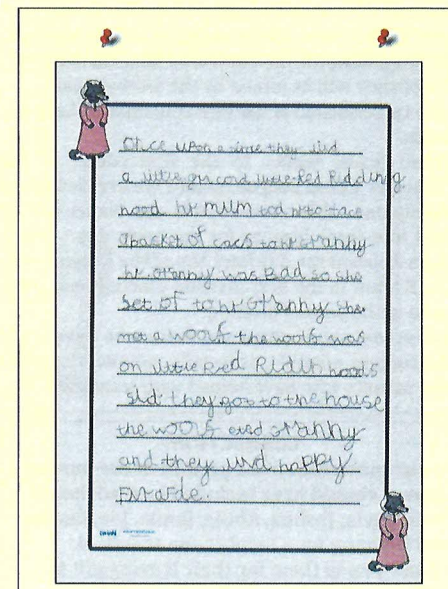 Once upon a time they livd
a little girl cord little Red Ridding
hood hr mum tod hr to tace
a packet of cacs to hr Granny
hr Granny was Badd so she
set of to hr Granny she
mot a woolf the woolf was
on little Red Ridin hoods
sid they got to the house
the woolf eted Granny
and they livd happy
Evrarde.